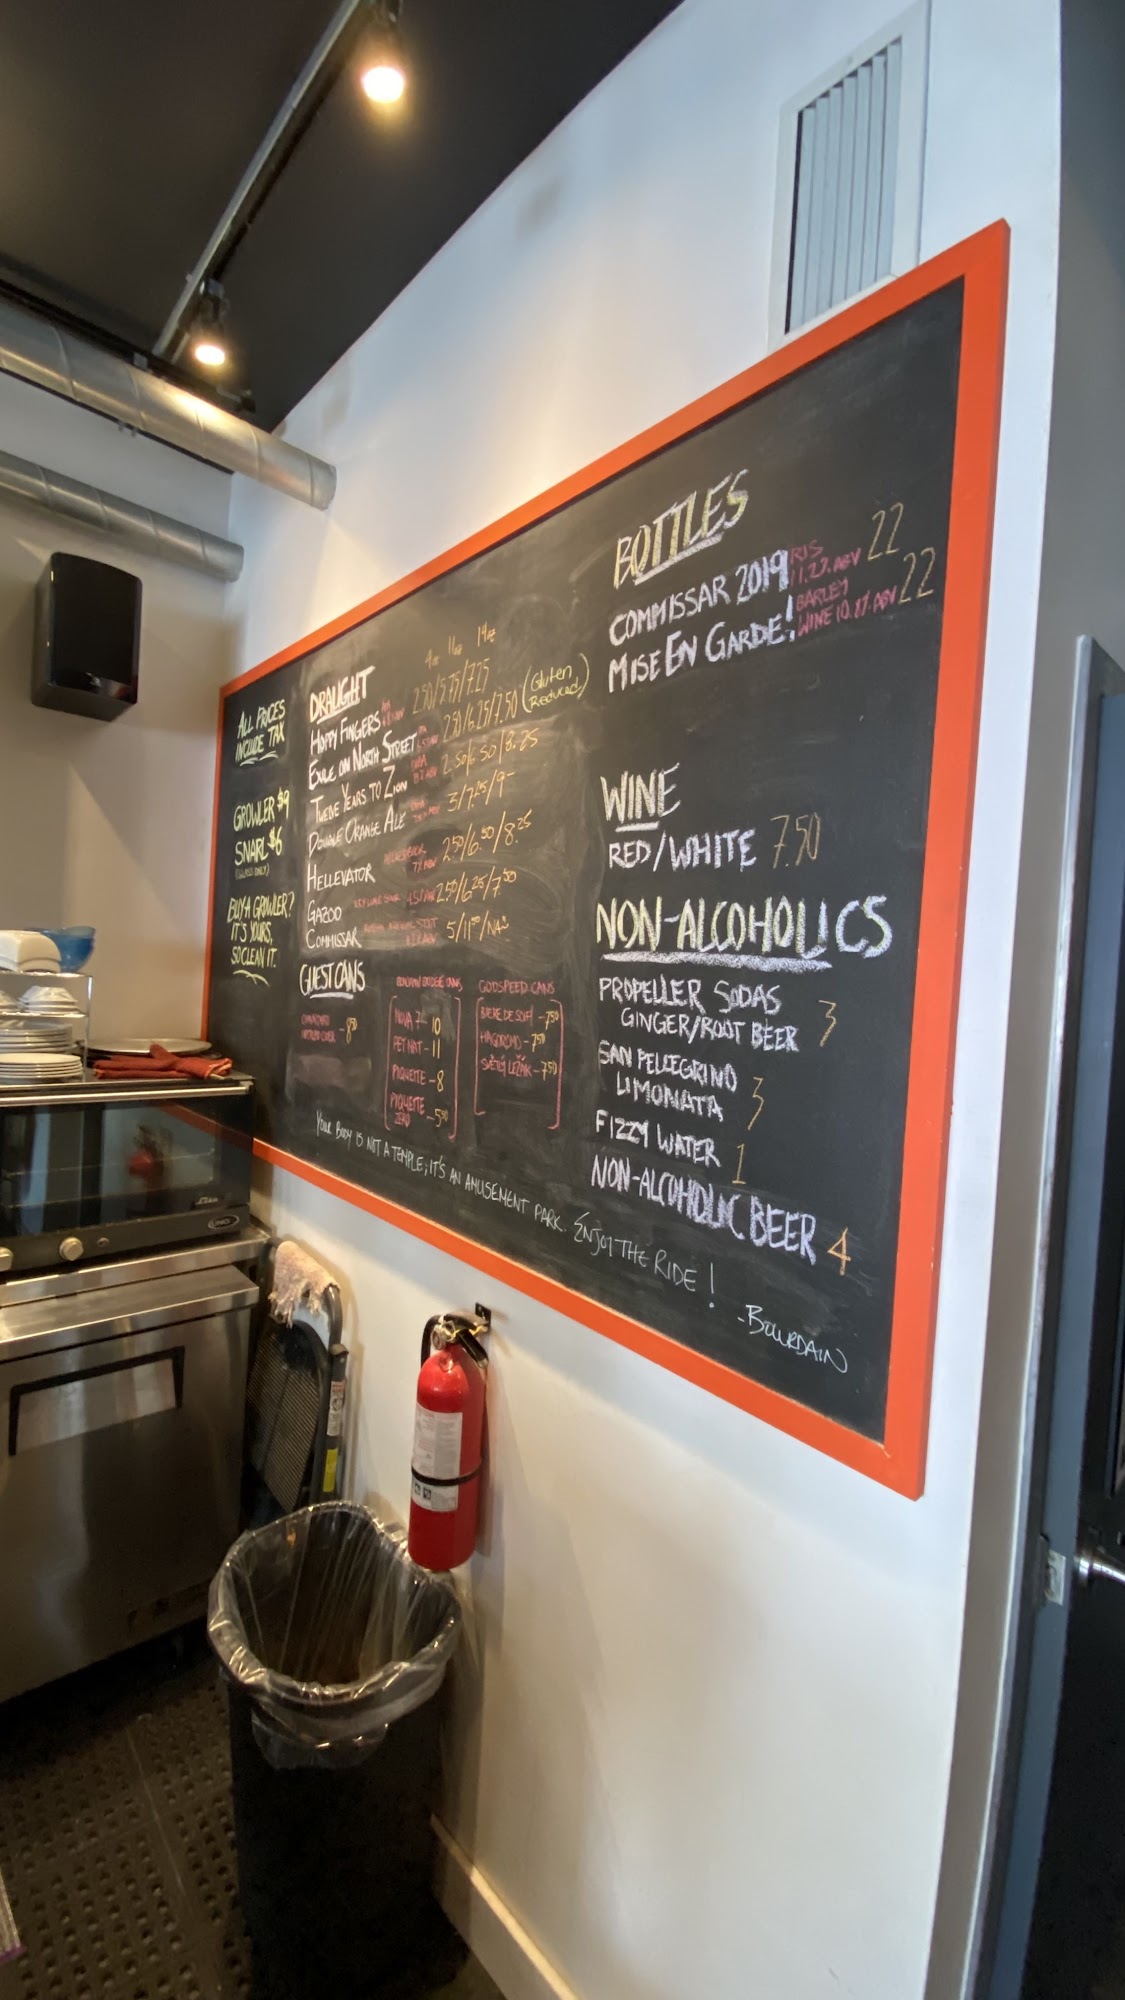 ALL PRICES
INCLUDE TAX
GROWLER $9
SNARL $6
(GLASS ONLY)
BUY A GROWLER?
IT'S YOURS,
SO CLEAN IT.
DRAUGHT 4oz 11oz 14oz
HOPPY FINGERS 2.50/5.75/7.25
EXILE ON NORTH STREET 2.50/6.25/7.50 (Gluten Reduced)
TWELVE YEARS TO ZION 2.50/6.50/8.25
DOUBLE ORANGE ALE 3/7.25/9-
HELLEVATOR 7% ABV 2.50/6.50/8.25
GAZOO KEY LIME SOUR 4.5% ABV 2.50/6.25/7.50
COMMISSAR 5/11.50/NA
GUEST CANS
- 8.50
BENJAMIN BRIDGE CANS
NOVA 7 - 10
PET NAT - 11
PIQUETTE - 8
PIQUETTE ZERO - 5.50
GODSPEED CANS
BIERE DE SOIF! - 7.50
HAGOROMO - 7.50
SVĚTLÝ LEŽÁK - 7.50
BOTTLES
COMMISSAR 2019 RIS 11.2% ABV 22
MISE EN GARDE! BARLEY WINE 10.8% ABV 22
WINE
RED/WHITE 7.50
NON-ALCOHOLICS
PROPELLER SODAS
GINGER/ROOT BEER 3
SAN PELLEGRINO
LIMONATA 3
FIZZY WATER 1
NON-ALCOHOLIC BEER 4
YOUR BODY IS NOT A TEMPLE; IT'S AN AMUSEMENT PARK. ENJOY THE RIDE!
-BOURDAIN